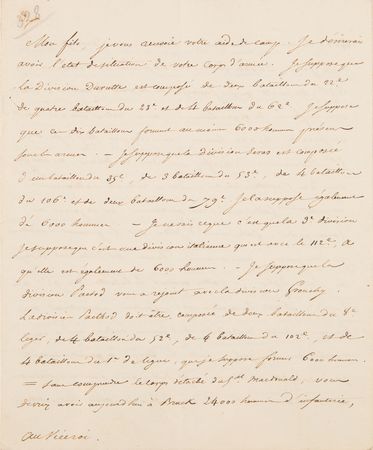 Mon fils, je vous renvoie votre aide de camp. Je desirerais
avoir l'etat de situation de votre corps d'armée. Je suppose que
la Division Durutte est composée de deux bataillons du 22e
de quatre bataillons du 23e et de 4 bataillons du 62e. Je suppose
que ces dix bataillons forment au moins 6000 hommes présens
sous les armes. — Je suppose que la division Seras est composée
d'un bataillon du 35e, de 3 bataillons du 53e, de 4 bataillons
du 106e et de deux bataillons du 79e. Je la suppose également
de 6000 hommes — Je ne sais ce que c'est que la 3e division
je suppose que c'est une division italienne qui est avec le 112e &
qu'elle est également de 6000 hommes. — Je suppose que la
division Pacthod vous a rejoint avec la division Grouchy.
La division Pacthod doit être composée de deux bataillons du 8e
leger, de 4 bataillons du 52e, de 4 bataillons du 102e, et de
4 bataillons du 1er de ligne, que je suppose former 6000 hommes.
= Sans comprendre le corps détaché du Gal Macdonald, vous
devriez avoir aujourd'hui à Bruck 24000 hommes d'infanterie,
Au Viceroi.